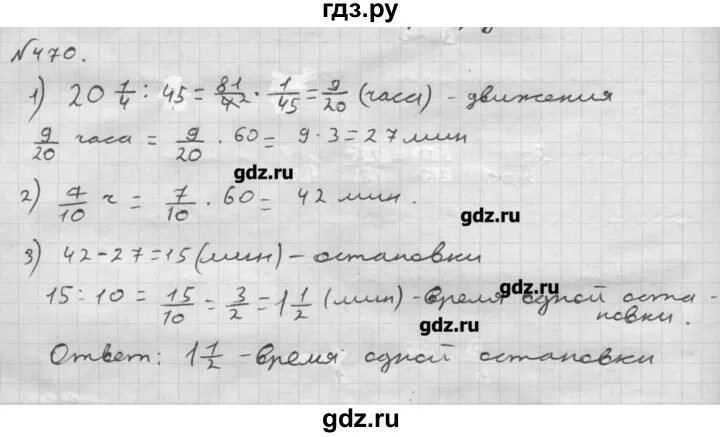 гдз.ру
№470.
1) 20 1/4 : 45 = 81/4 · 1/45 = 9/20 (часа) - движения
9/20 часа = 9/20 · 60 = 9·3 = 27 мин
gdz.ru
2) 7/10 ч = 7/10 · 60 = 42 мин.
gdz.ru
3) 42-27=15 (мин) - остановки
gdz.ru
15:10 = 15/10 = 3/2 = 1 1/2 (мин) - время одной оста-
новки.
gdz.ru
Ответ: 1 1/2 - время одной остановки
gdz.ru